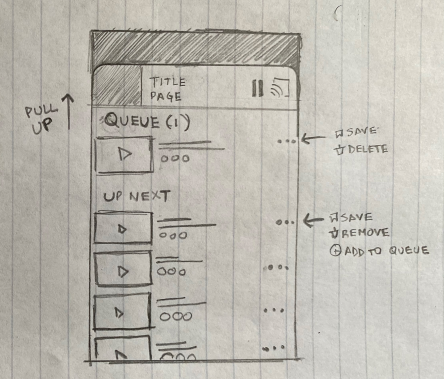 TITLE
PAGE
PULL
UP
QUEUE (1)
SAVE
DELETE
UP NEXT
SAVE
REMOVE
ADD TO QUEUE